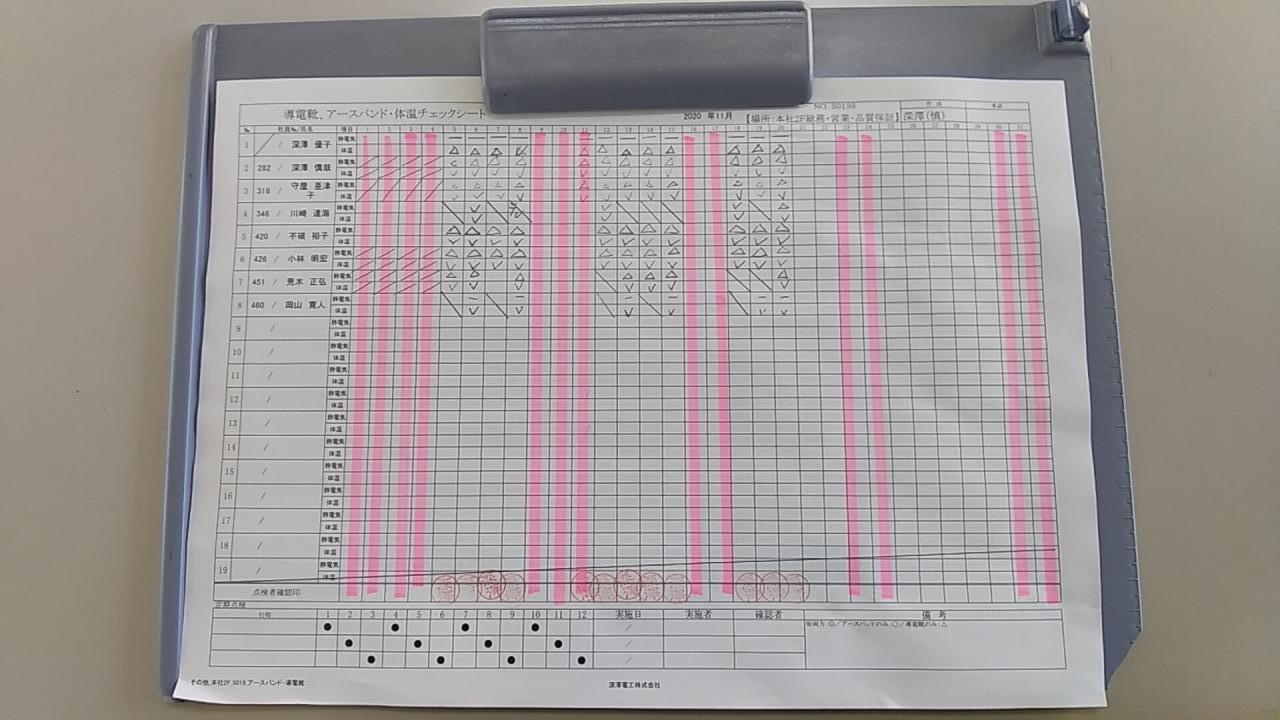 導電靴、アースバンド・体温チェックシート
2020 年11月 【場所:本社2F総務・営業・品質保証】 深澤(慎)
NO. 5019S
作成 承認
№ 社員№/氏名 項目 1 2 3 4 5 6 7 8 9 10 11 12 13 14 15 16 17 18 19 20 21 22 23 24 25 26 27 28 29 30 31
1 / 深澤 優子 静電気
体温
2 282 / 深澤 慎哉 静電気
体温
3 316 / 守屋 亜津子 静電気
体温
4 346 / 川崎 達海 静電気
体温
5 420 / 不破 裕子 静電気
体温
6 426 / 小林 明宏 静電気
体温
7 451 / 荒木 正弘 静電気
体温
8 460 / 岡山 寛人 静電気
体温
9 / 静電気
体温
10 / 静電気
体温
11 / 静電気
体温
12 / 静電気
体温
13 / 静電気
体温
14 / 静電気
体温
15 / 静電気
体温
16 / 静電気
体温
17 / 静電気
体温
18 / 静電気
体温
19 / 静電気
体温
点検者確認印
定期点検
行程 1 2 3 4 5 6 7 8 9 10 11 12 実施日 実施者 確認者 備考
※両方:◎/アースバンドのみ:○/導電靴のみ:△
その他_本社2F_5019_アースバンド・導電靴
深澤電工株式会社